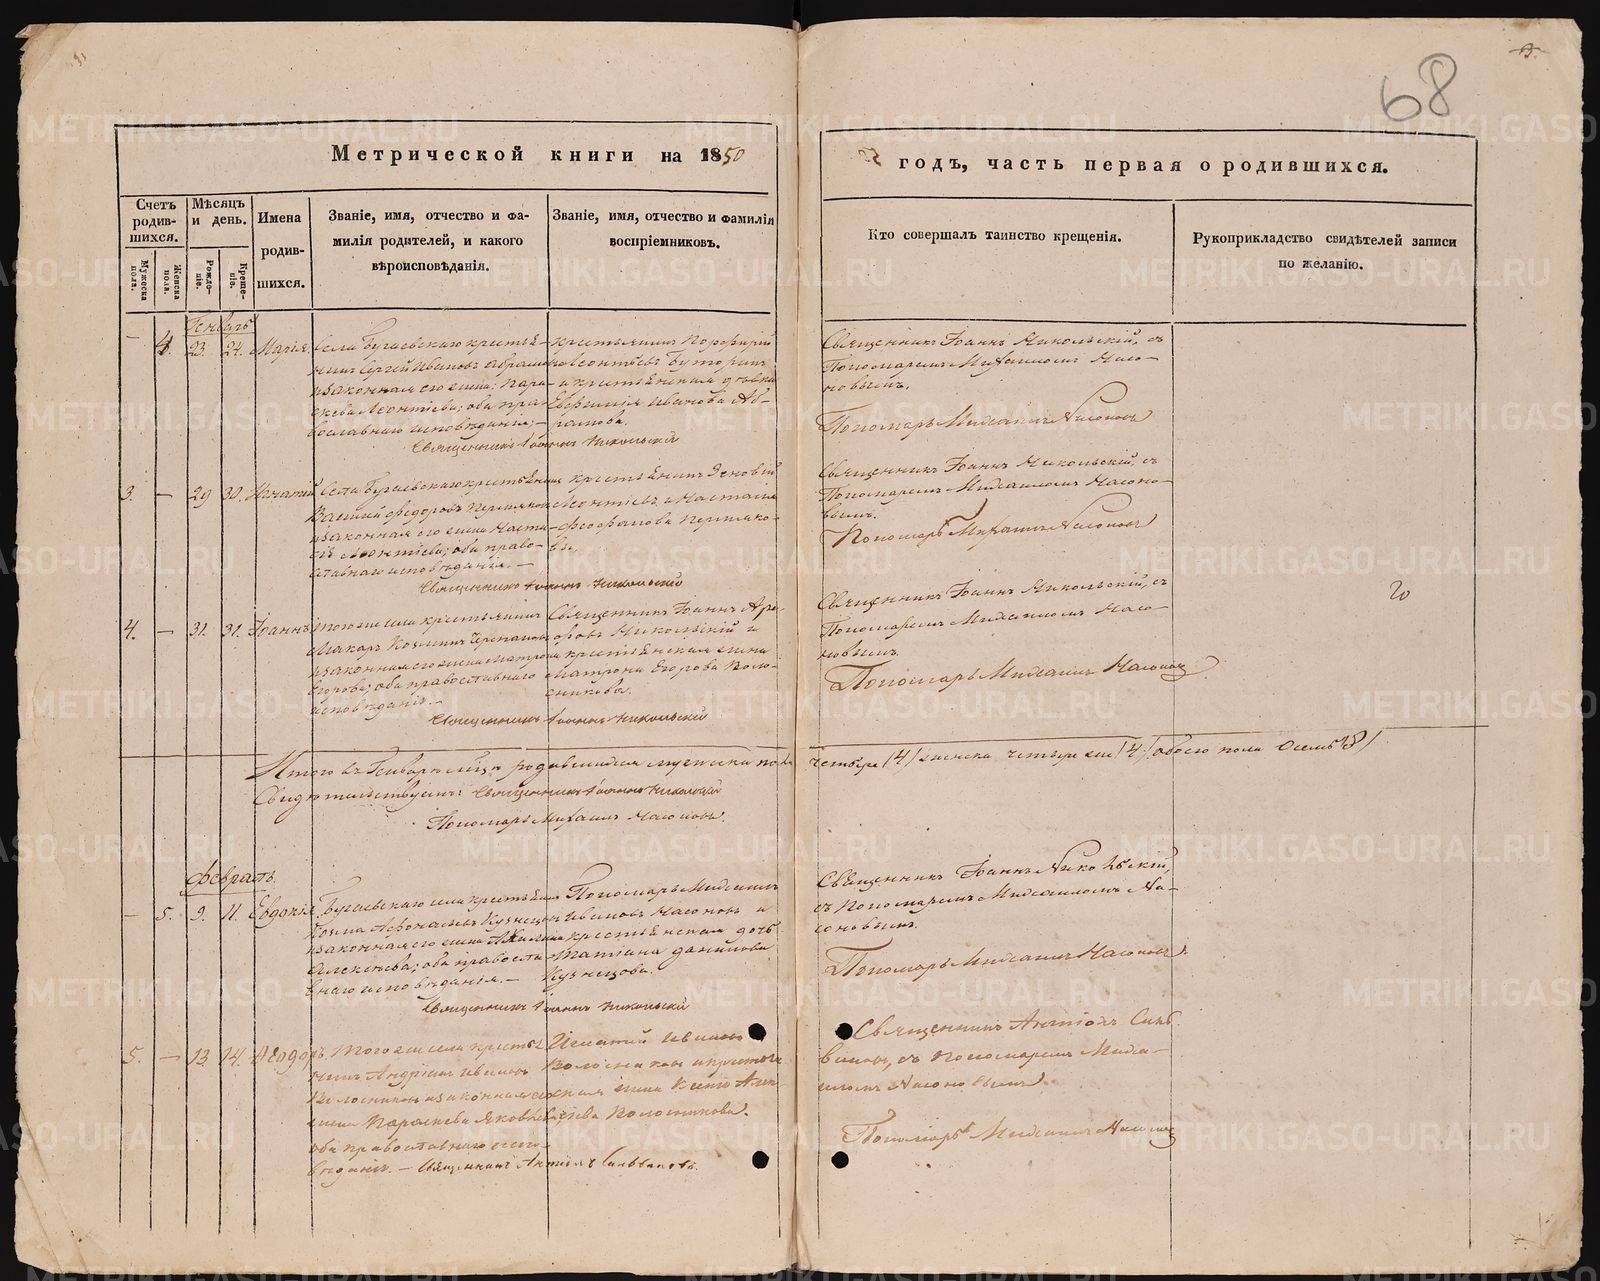 68
Метрической книги на 1850
годъ, часть первая о родившихся.
Счетъ родив-шихся.
Мужеска пола.
Женска пола.
Мѣсяцъ и день.
Рожде-нія.
Креще-нія.
Имена родив-шихся.
Званіе, имя, отчество и фа-
милія родителей, и какого
вѣроисповѣданія.
Званіе, имя, отчество и фамилія
воспріемниковъ.
Кто совершалъ таинство крещенія.
Рукоприкладство свидѣтелей записи
по желанію.
Генварь
4. 23. 24. Марія
Села Бугаевскаго крестья-
нинъ Сергій Ивановъ
и законная его жена Пара-
скева Леонтіева; оба пра-
вославнаго исповѣданія;
Священникъ Іоаннъ Никольскій
крестьянинъ Порфирій
Леонтьевъ
и крестьянская дѣвка
Евфимія Иванова Аб-
рамова.
Священникъ Іоаннъ Никольскій, съ
Пономаремъ Михаиломъ Насо-
новымъ.
Пономарь Михаилъ Насоновъ
3. — 29 30. Игнатій
Села Бугаевскаго крестьянинъ
Василій Федоровъ Пермяковъ
и законная его жена Наста-
сія Леонтіева; оба право-
славнаго исповѣданія. —
Священникъ Іоаннъ Никольскій
крестьянинъ Зеновій
Леонтіевъ и Настасія
Феофанова Пермяко-
вы.
Священникъ Іоаннъ Никольскій, съ
Пономаремъ Михаиломъ Насоно-
вымъ.
Пономарь Михаилъ Насоновъ
4. — 31. 31. Іоаннъ
того же села крестьянинъ
Макаръ Козминъ
и законная его жена Матрона
Егорова; оба православнаго
исповѣданія. —
Священникъ Іоаннъ Никольскій
Священникъ Іоаннъ
Никольскій и
крестьянская жена
Матрона Егорова
Священникъ Іоаннъ Никольскій, съ
Пономаремъ Михаиломъ Насо-
новымъ.
Пономарь Михаилъ Насоновъ
Итого въ Генварѣ мѣсяцѣ родившихся мужеска пола
четыре /4/ женска четыре же /4/ обоего пола осемь /8/
Свидѣтельствуемъ: Священникъ Іоаннъ Никольскій
Пономарь Михаилъ Насоновъ.
Февраль.
— 5. 9. 11. Евдокія
Бугаевскаго села крестьянинъ
Козма Афонасьевъ Кузнецовъ
и законная его жена
Алексѣева; оба правосла-
внаго исповѣданія. —
Священникъ Іоаннъ Никольскій
Пономарь Михаилъ
Ивановъ Насоновъ и
крестьянская дочь
Татіана Данилова
Кузнецова.
Священникъ Іоаннъ Никольскій,
съ Пономаремъ Михаиломъ На-
соновымъ.
Пономарь Михаилъ Насоновъ.
5. — 13. 14. Ѳеодоръ
Того же села крестья-
нинъ Андріанъ Ивановъ
и законная его
жена Параскева Яковлева,
оба православнаго испо-
вѣданія. — Священникъ
Игнатій Ивановъ
и крестьян-
ская жена
Священникъ
съ Пономаремъ Миха-
иломъ Насоновымъ.
Пономарь Михаилъ Насоновъ
METRIKI.GASO-URAL.RU